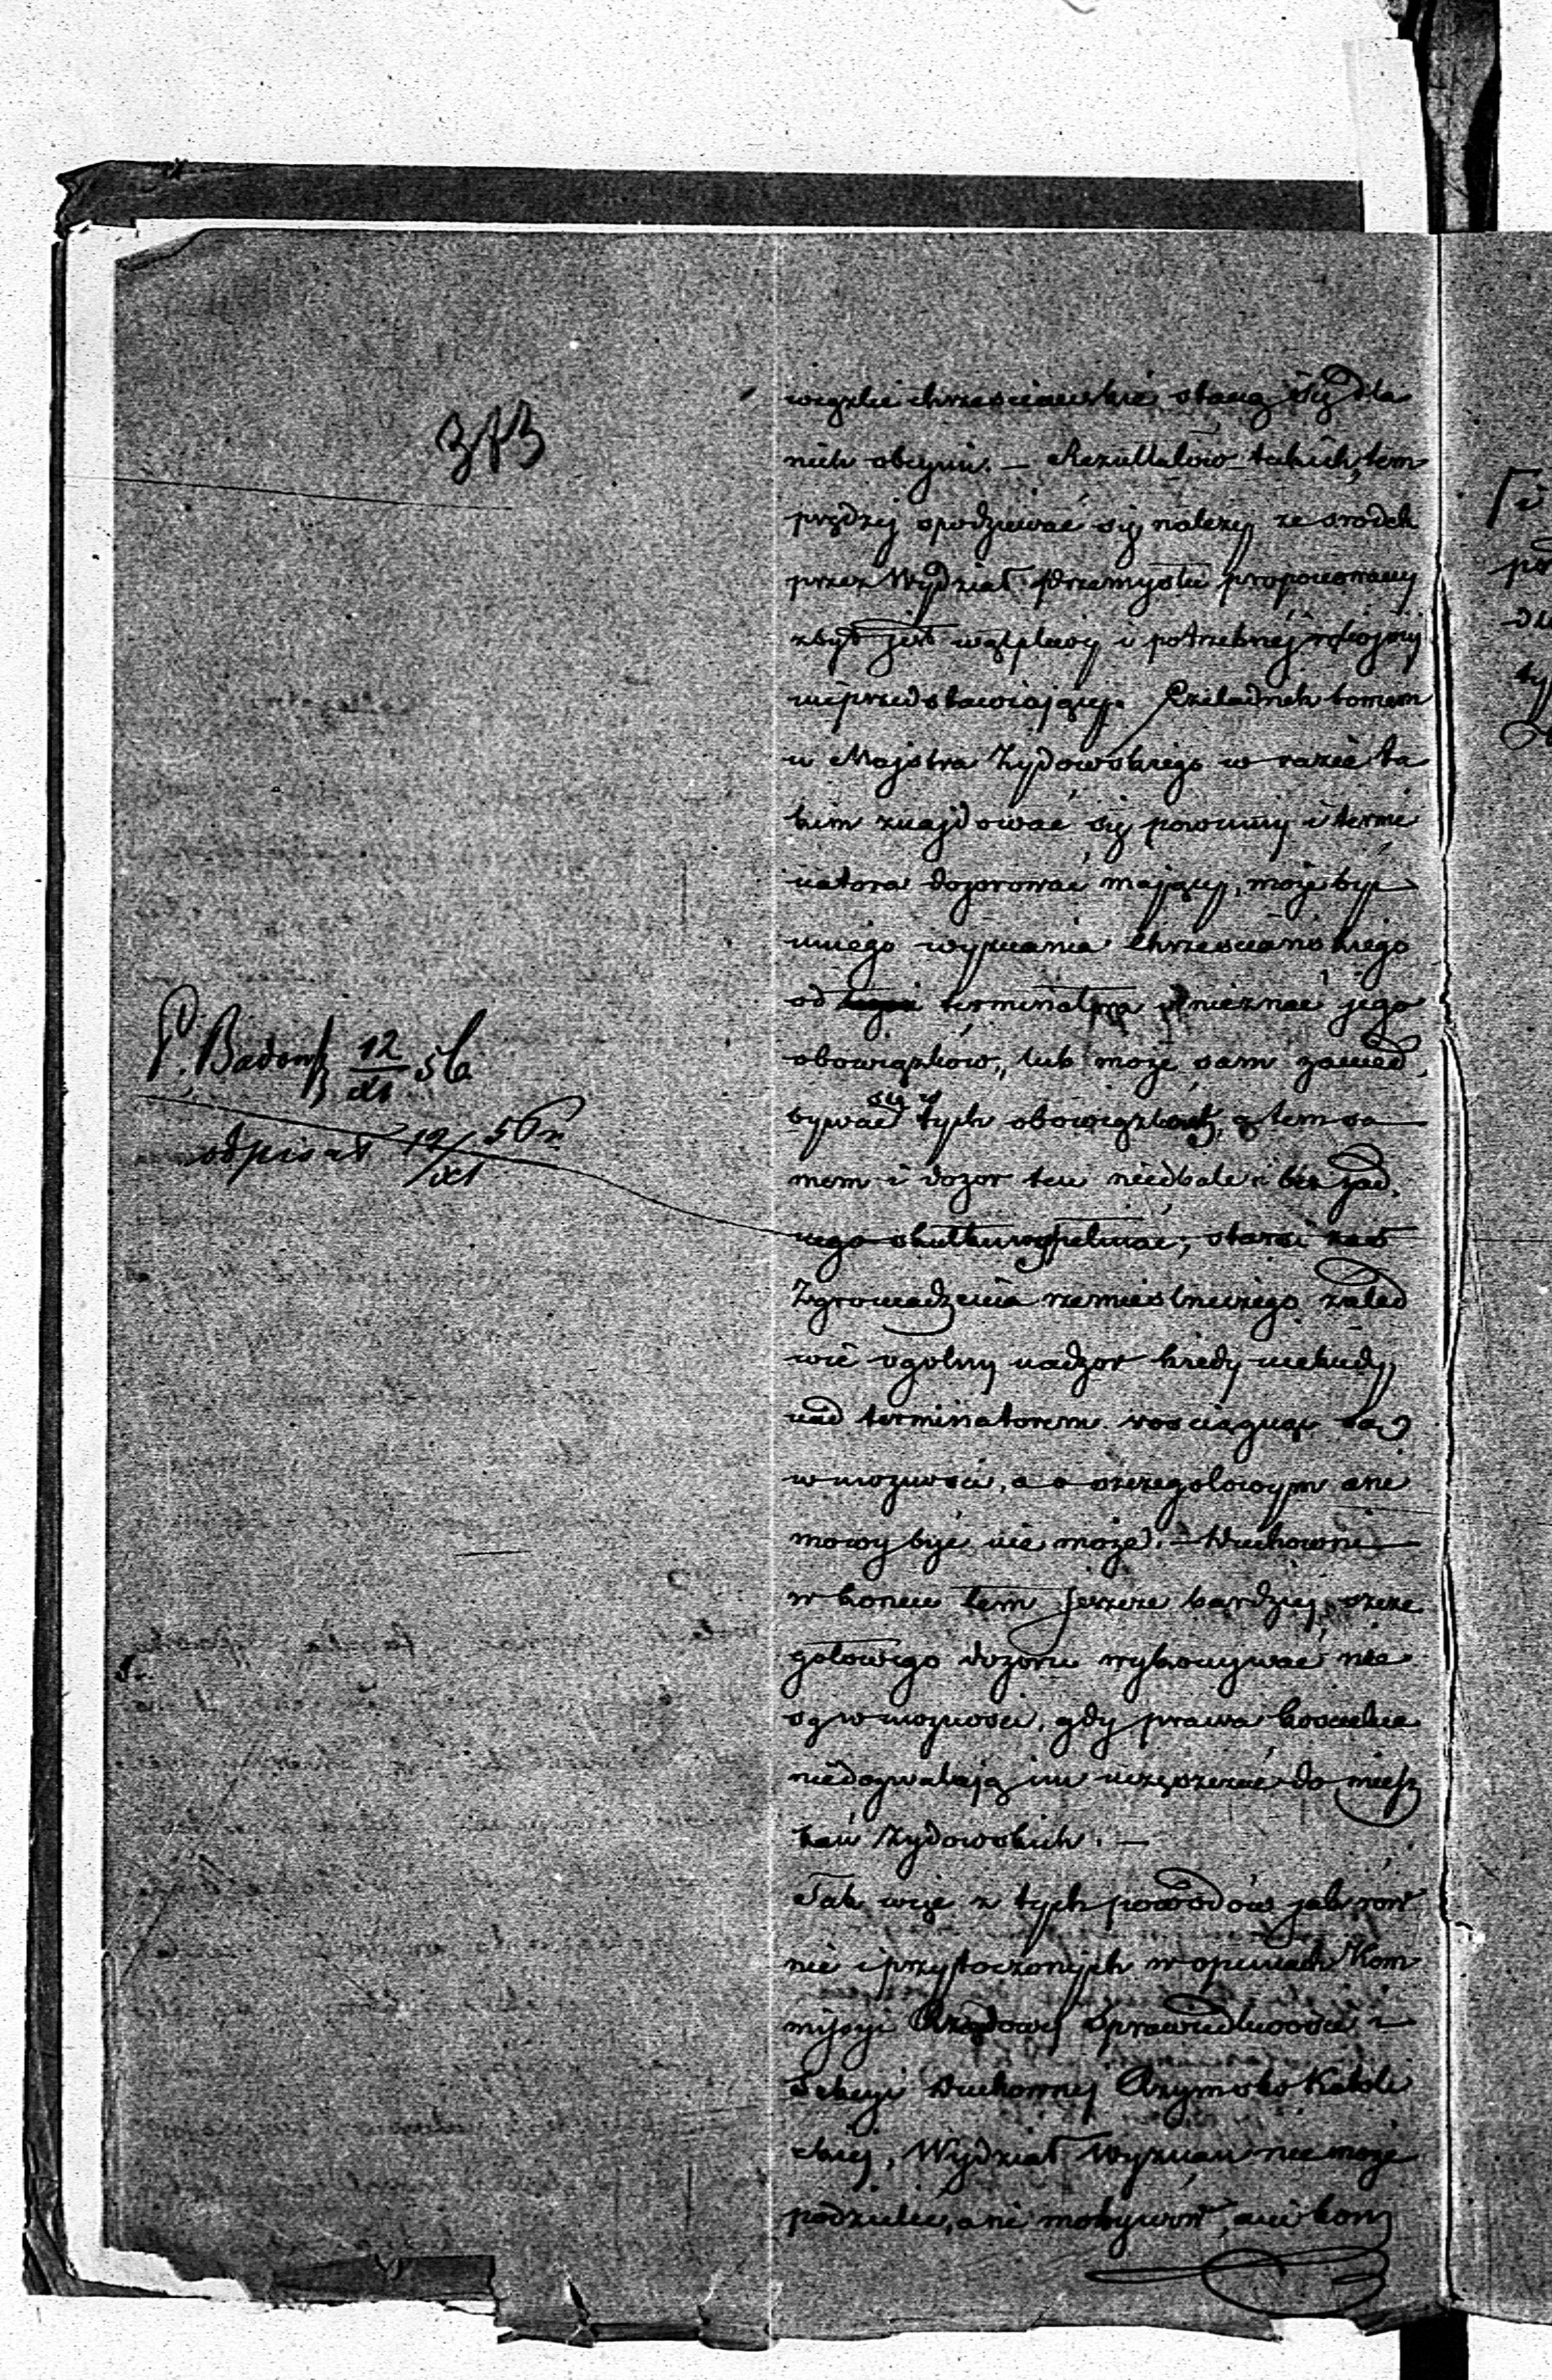 373
P. Badow 12/XI 56
odpisał 12/XI 56 r.
wiązki chrześciańskie staną się dla
nich obcymi. — Rezultatów takich, tem
prędzej spodziewać się należy ze środek
przez Wydział Przemysłu proponowany
zbyt jest wątpliwy i potrzebnej rękojmi
nieprzedstawiający. Czeladnik bowiem
u Majstra Żydowskiego w razie ta
kim znajdować się powinny i termi
natora dozorować mający, może być
innego wyznania Chrześciańskiego
od terminatora i nieznać jego
obowiązków, lub może sam zanied
bywać się w tych obowiązkach, a tem sa
mem i dozor ten niedbale i bez żad
nego skutku wypełniać; starsi zaś
Zgromadzenia rzemieślniczego zaled
wie ogolny nadzor kiedy niekiedy
nad terminatorem rościągnąć są
w możności, a o szczegolowym ani
mowy być nie może. — Duchowni
w końcu tem jeszcze bardziej szcze
gołowego dozoru wykonywać nie
są w możności, gdy prawa kościelne
niedozwalają im uczęszczać do miesz
kań Żydowskich. —
Tak więc z tych powodów jak rów
nie i przytoczonych w opiniach Kom
missyi Rządowej Sprawiedliwości i
Sekcyi Duchownej Rzymsko Katoli
ckiej, Wydział Wyznań nie może
podzielić, ani motywów, ani